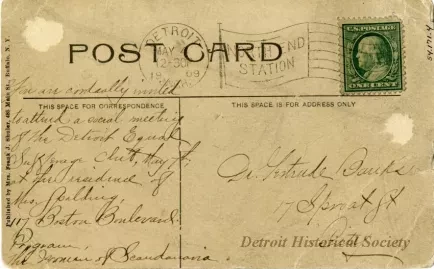 DETROIT
MAY
12-30P
1909
NORTH END
STATION
U.S. POSTAGE
ONE CENT
POST CARD
You are cordially invited
THIS SPACE FOR CORRESPONDENCE
THIS SPACE IS FOR ADDRESS ONLY
to attend a social meeting
of the Detroit Equal
Suffrage Club, May 7,
at the residence of
Mrs. Spelding,
117 Boston Boulevard
Program,
The Women of Scandanavia.
Dr Gertrude Banks
17 Sproat St
Detroit Historical Society
Published by Mrs. Frank J. Shuler, Buffalo, N. Y.